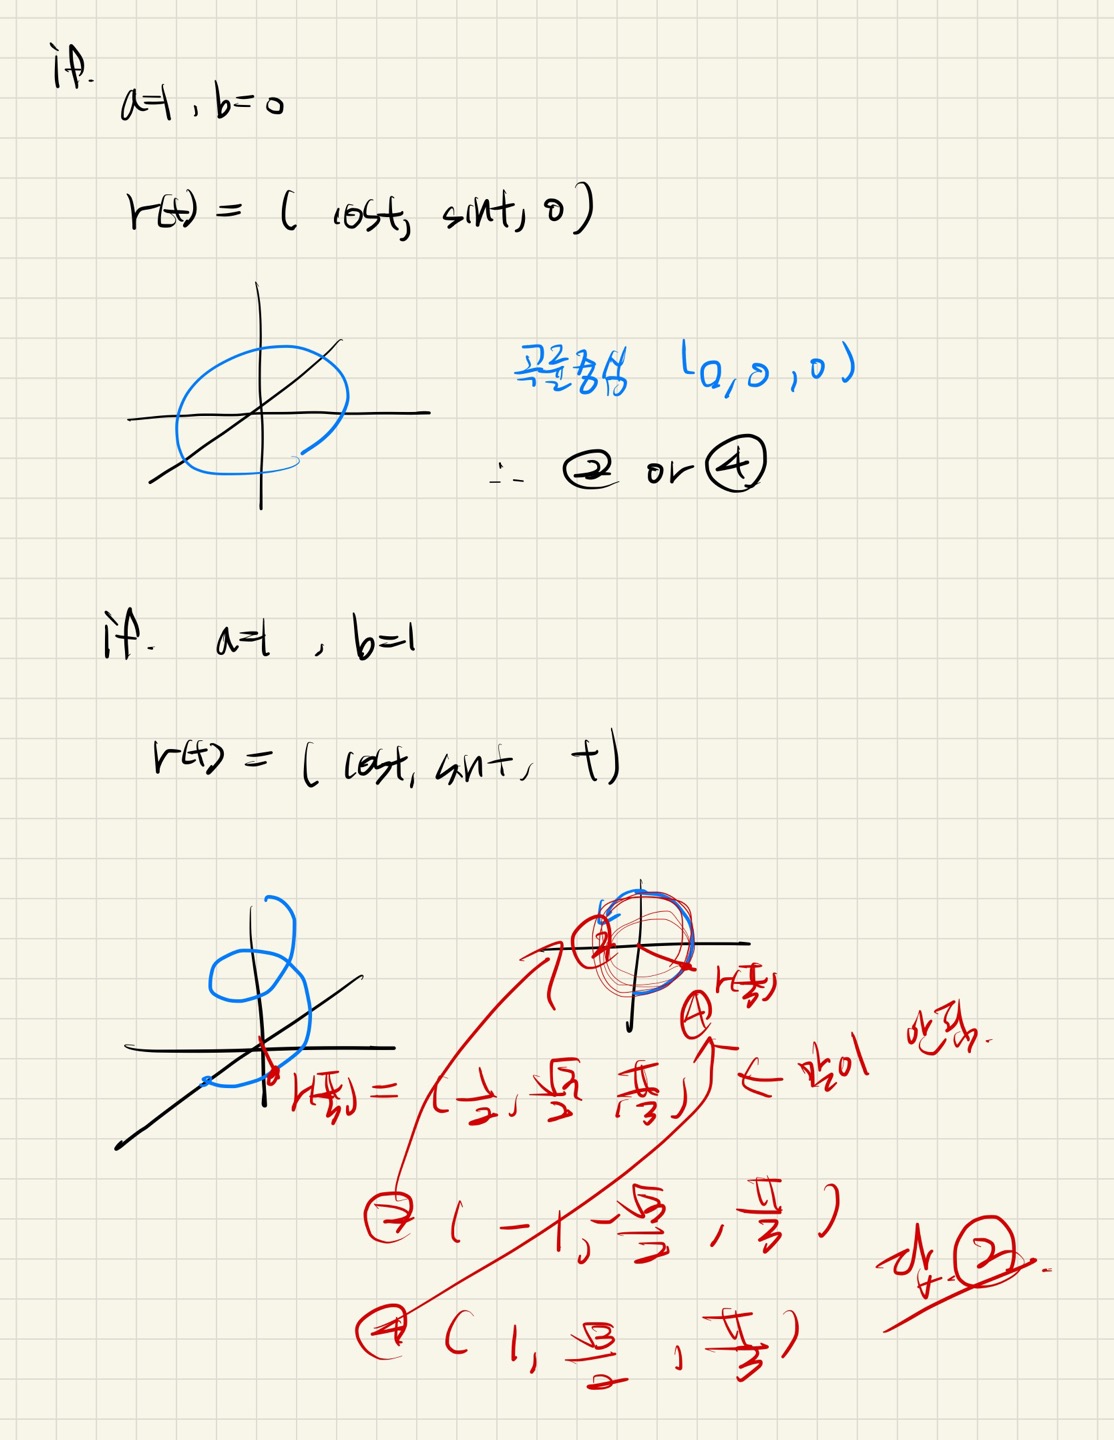 if.
a=1, b=0
r(t) = ( cost, sint, 0 )
곡률중심 (0, 0, 0)
∴ ② or ④
if. a=1, b=1
r(t) = ( cost, sint, t )
②
r(π/3)
④
r(π/3) = ( 1/2, √3/2, π/3 ) ← 말이 안됨.
② ( -1, -√3/2, π/3 )
답. ②.
④ ( 1, √3/2, π/3 )